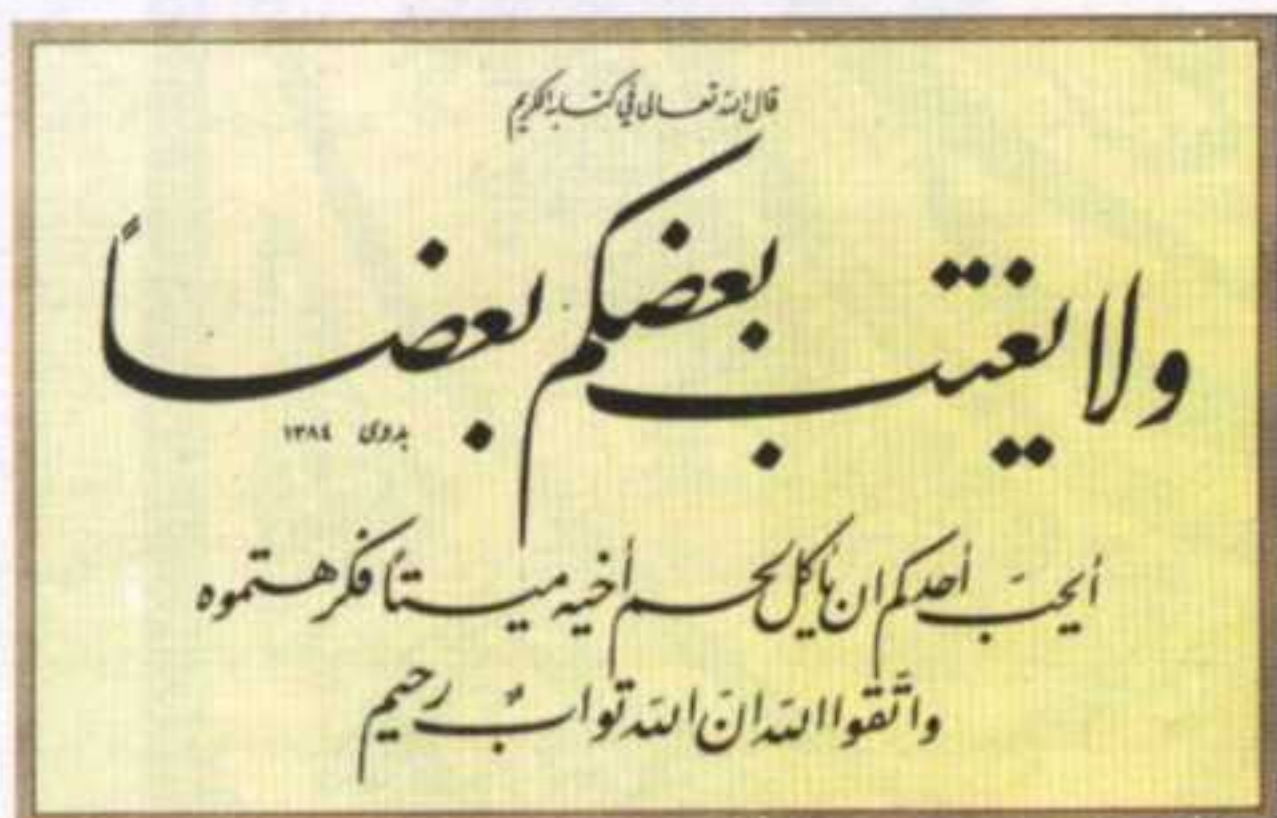 قال الله تعالى في كتابه الكريم
ولا يغتب بعضكم بعضاً
بدوى ١٣٨٤
أيحبَ أحدكم ان يأكل لحم أخيه ميتاً فكرهتموه
واتَّقوا الله انَ الله توابٌ رحيم